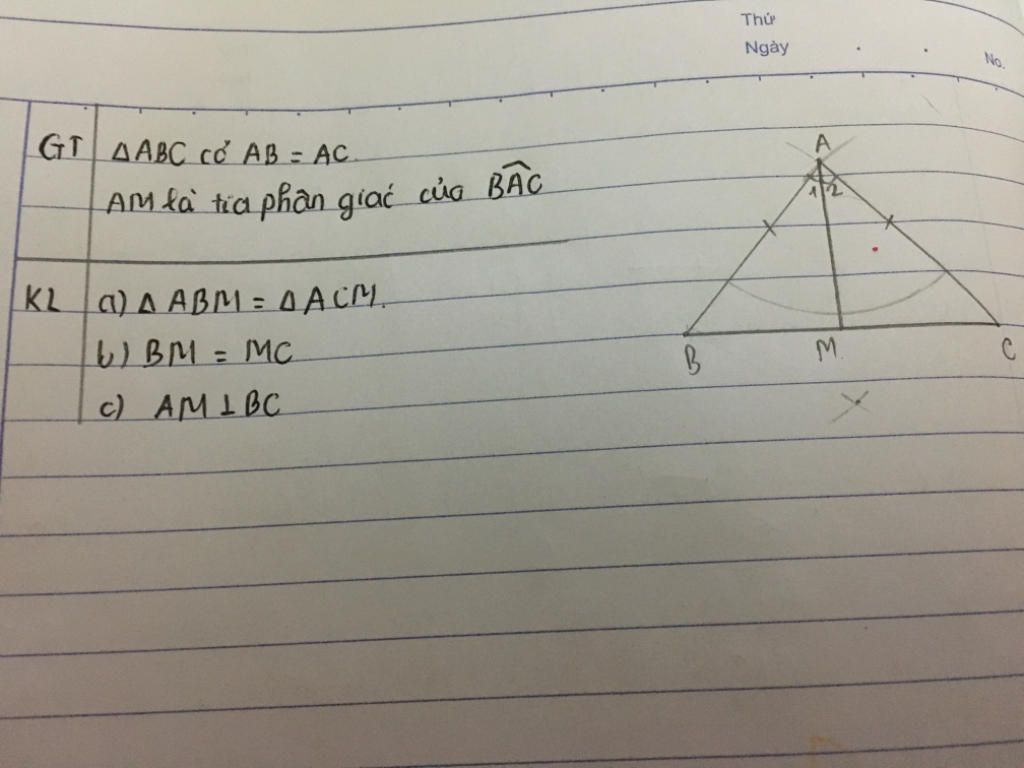 Thứ
Ngày
No.
GT ΔABC có AB = AC
AM là tia phân giác của BÂC
KL a) Δ ABM = Δ ACM.
b) BM = MC
c) AM ⊥ BC
A
1 2
B M C